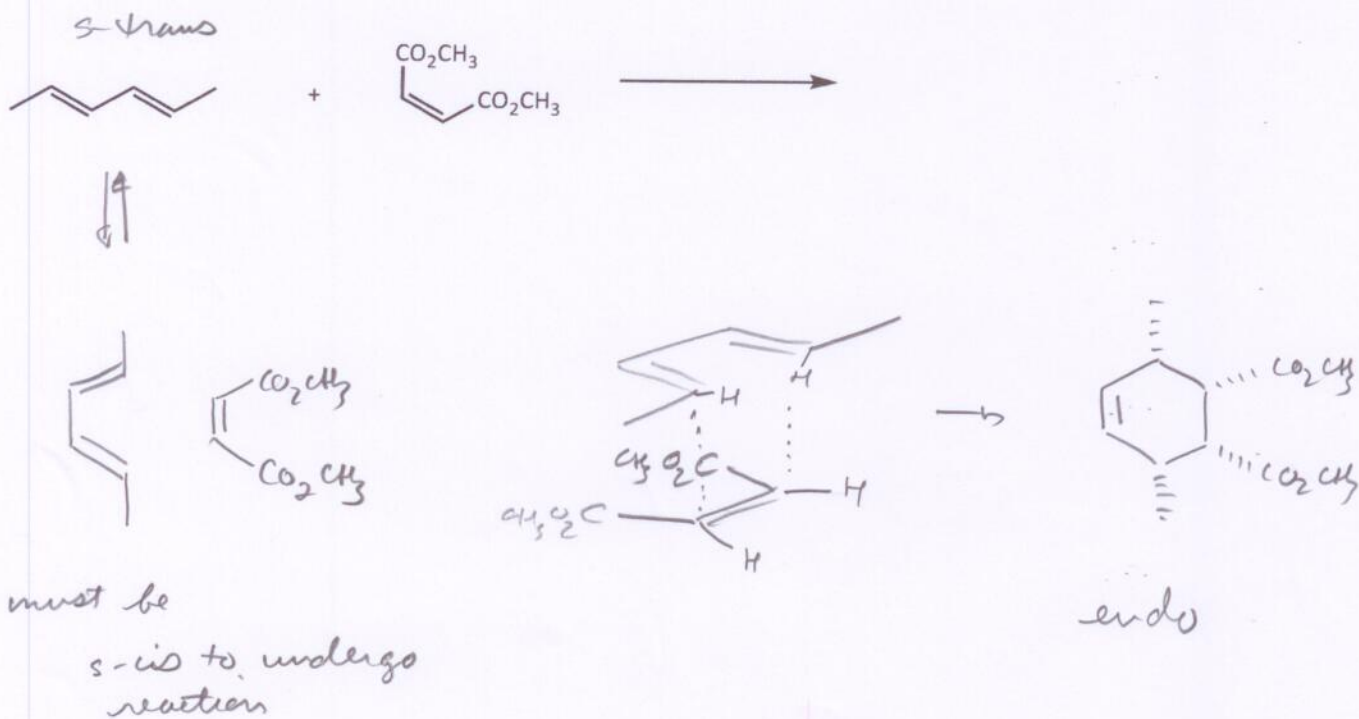 s-trans
CO₂CH₃
+
CO₂CH₃
CO₂CH₃
CO₂CH₃
H
H
CH₃O₂C
H
CH₃O₂C
H
CO₂CH₃
CO₂CH₃
must be
s-cis to undergo
reaction
endo